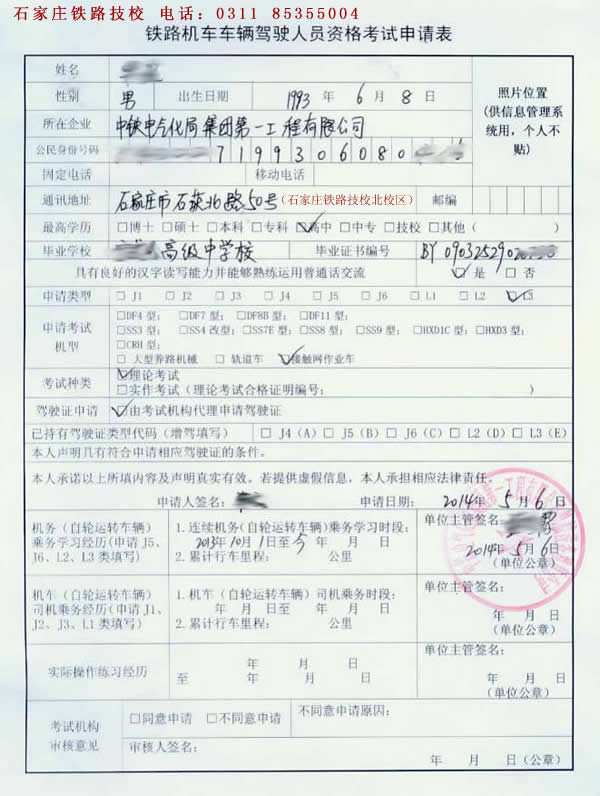 石家庄铁路技校 电话:0311 85355004
铁路机车车辆驾驶人员资格考试申请表
姓名
照片位置
(供信息管理系统用,个人不贴)
性别 男 出生日期 1993 年 6 月 8 日
所在企业 中铁电气化局集团第一工程有限公司
公民身份号码 7199306080
固定电话 移动电话
通讯地址 石家庄市石获北路50号(石家庄铁路技校北校区) 邮编
最高学历 □博士 □硕士 □本科 □专科 ☑高中 □中专 □技校 □其他( )
毕业学校 高级中学校 毕业证书编号 BY 0903252902
具有良好的汉字读写能力并能够熟练运用普通话交流 ☑是 □否
申请类型 □J1 □J2 □J3 □J4 □J5 □J6 □L1 □L2 ☑L3
申请考试机型
□DF4型; □DF7型; □DF8B型; □DF11型;
□SS3型; □SS4改型; □SS7E型; □SS8型; □SS9型; □HXD1C型; □HXD3型;
□CRH型;
□大型养路机械 □轨道车 ☑接触网作业车
考试种类 ☑理论考试
□实作考试(理论考试合格证明编号: )
驾驶证申请 ☑由考试机构代理申请驾驶证
已持有驾驶证类型代码(增驾填写) □J4(A) □J5(B) □J6(C) □L2(D) □L3(E)
本人声明具有符合申请相应驾驶证的条件。
本人承诺以上所填内容及声明真实有效。若提供虚假信息,本人承担相应法律责任。
申请人签名: 申请日期: 2014年 5月 6日
机务(自轮运转车辆)乘务学习经历(申请J5、J6、L2、L3类填写)
1.连续机务(自轮运转车辆)乘务学习时段:
2013年10月1日至今 年 月 日
2.累计行车里程: 公里
单位主管签名:
2014年 5月 6日
(单位公章)
机车(自轮运转车辆)司机乘务经历(申请J1、J2、J3、L1类填写)
1.机车(自轮运转车辆)司机乘务时段:
年 月 日至 年 月 日
2.累计行车里程: 公里
单位主管签名:
年 月 日
(单位公章)
实际操作练习经历
年 月 日
至 年 月 日
单位主管签名:
年 月 日
(单位公章)
考试机构审核意见
□同意申请 □不同意申请 不同意申请原因:
审核人签名:
年 月 日(公章)